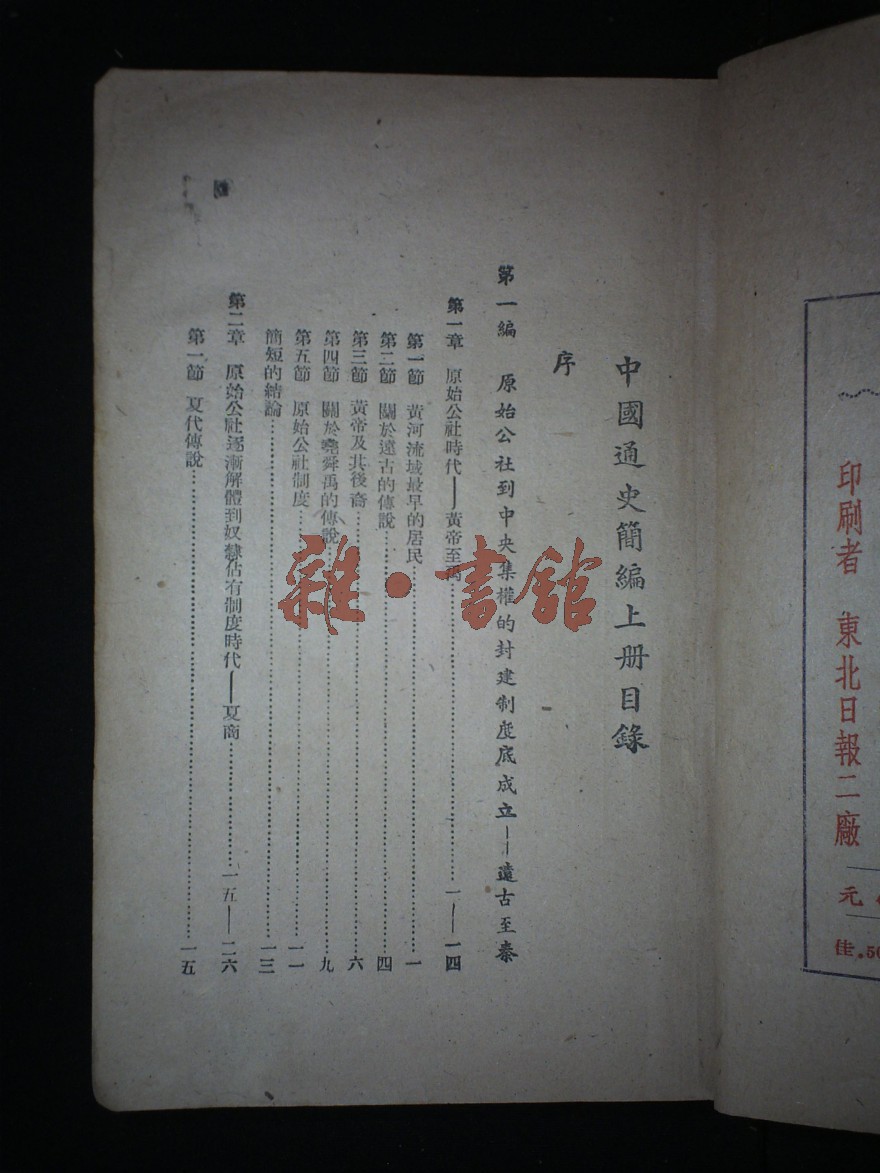 印刷者　東北日報二廠
元
佳.50
中國通史簡編上册目錄
序
第一編　原始公社到中央集權的封建制度底成立——遠古至秦
第一章　原始公社時代——黃帝至禹………一——一四
第一節　黃河流域最早的居民………一
第二節　關於遠古的傳說………四
第三節　黃帝及其後裔………六
第四節　關於堯舜禹的傳說………九
第五節　原始公社制度………一一
簡短的結論………一三
第二章　原始公社逐漸解體到奴隸佔有制度時代——夏商………一五——二六
第一節　夏代傳說………一五
雜·書館